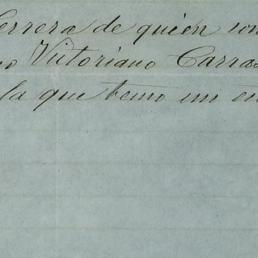 errera de quien son
no Victoriano Carras
la que temo un en